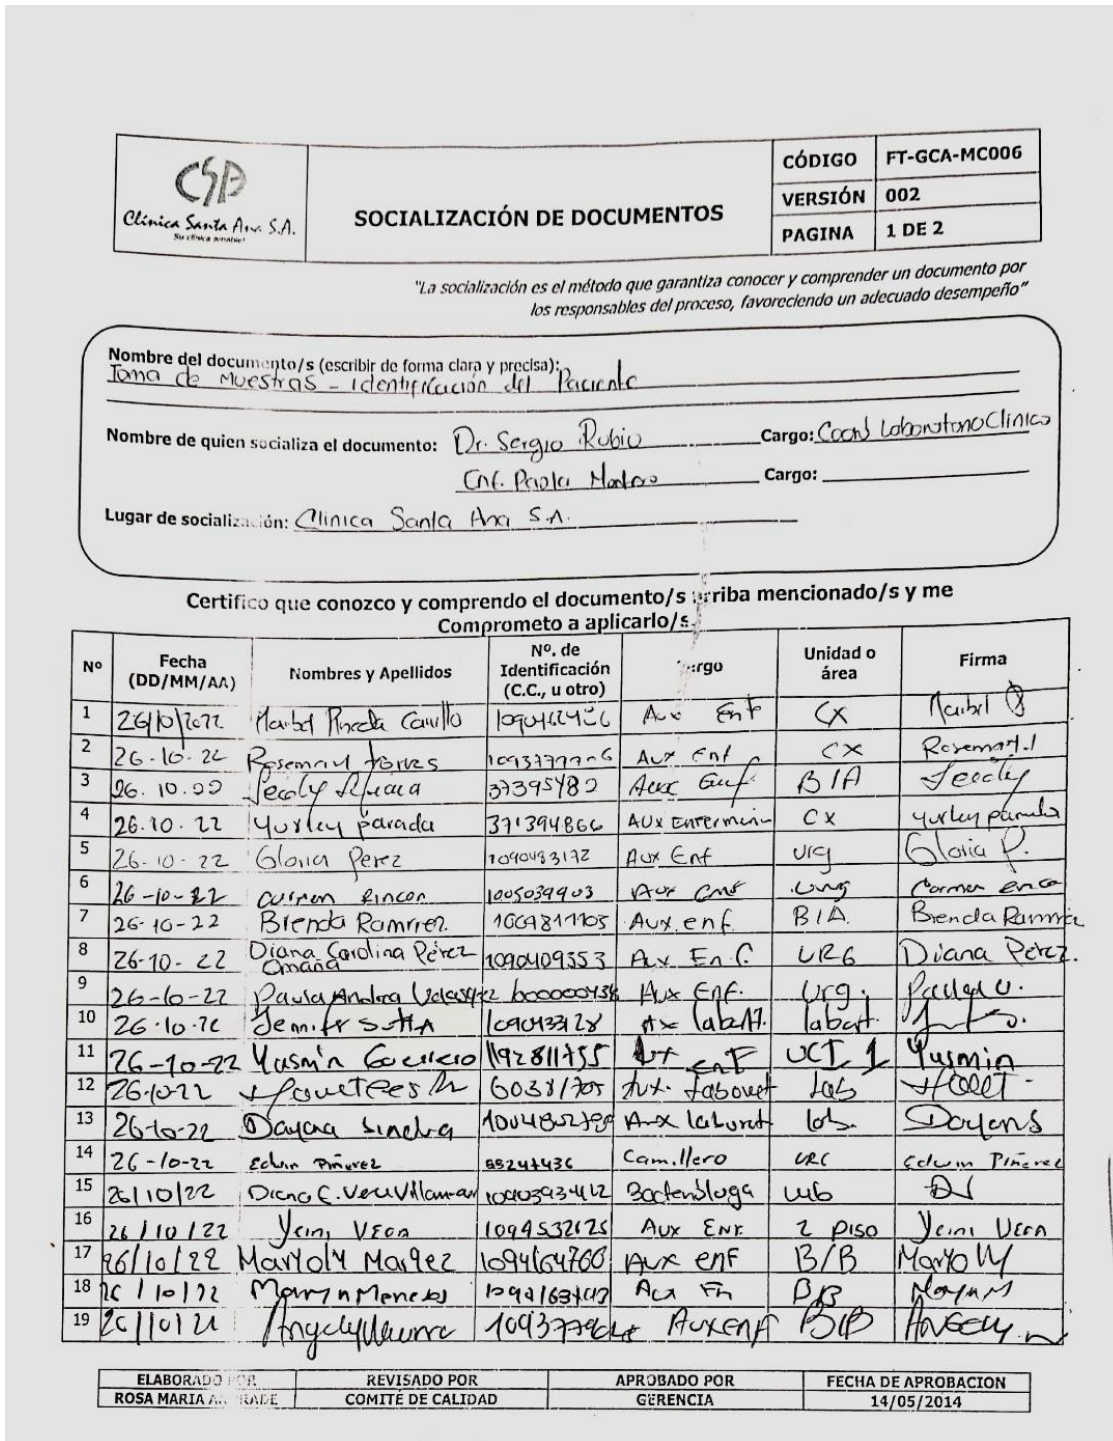 CSA
Clínica Santa Ana S.A.
Su clínica amable!
SOCIALIZACIÓN DE DOCUMENTOS
CÓDIGO FT-GCA-MC006
VERSIÓN 002
PAGINA 1 DE 2
"La socialización es el método que garantiza conocer y comprender un documento por
los responsables del proceso, favoreciendo un adecuado desempeño"
Nombre del documento/s (escribir de forma clara y precisa):
Toma de Muestras - Identificación del Paciente
Nombre de quien socializa el documento: Dr. Sergio Rubio Cargo: Coord Laboratorio Clinico
Enf. Paola Cargo:
Lugar de socialización: Clinica Santa Ana S.A.
Certifico que conozco y comprendo el documento/s arriba mencionado/s y me
Comprometo a aplicarlo/s.
Nº Fecha (DD/MM/AA) Nombres y Apellidos Nº. de Identificación (C.C., u otro) Cargo Unidad o área Firma
1 26/10/2022 Maribel Pineda Carrillo Aux Enf CX Maribel
2 26.10.22 Rosemary torres Aux Enf CX Rosemary.t
3 26.10.22 37395782 Aux Enf B/A
4 26.10.22 Yurley parada 371394866 AUX Enfermeria CX yurley parada
5 26-10-22 Gloria Perez 1090483172 Aux Enf Urg Gloria P.
6 26-10-22 carmen Rincon 1005039903 Aux enf Urg Carmen
7 26-10-22 Brenda Ramirez Aux.enf. B/A. Brenda Ramirez
8 26-10-22 Diana Carolina Pérez Omaña 1090409353 Aux En.f. URG Diana Pérez.
9 26-10-22 Paula Andrea Velasquez Aux Enf. Urg. Paula V.
10 26.10.22 1090433128 Ax labort. labort.
11 26-10-22 Yasmin Guerrero 1192811755 Aux enf UCI 1 Yasmin
12 26-10-22 Aux. laborat lab
13 26-10-22 Dayana Aux laborat lab. Dayana
14 26-10-22 Edwin Piñerez 88247436 Camillero URG Edwin Piñerez
15 26/10/22 Diana C. Vera Villamizar Bacterióloga lab
16 26/10/22 Yeini Vera 1094532125 Aux Enf 2 piso Yeini Vera
17 26/10/22 1094164760 Aux enf B/B
18 26/10/22 Aux En B/B
19 26/10/22 Aux enf B/B
ELABORADO POR REVISADO POR APROBADO POR FECHA DE APROBACION
ROSA MARIA ANDRADE COMITÉ DE CALIDAD GERENCIA 14/05/2014